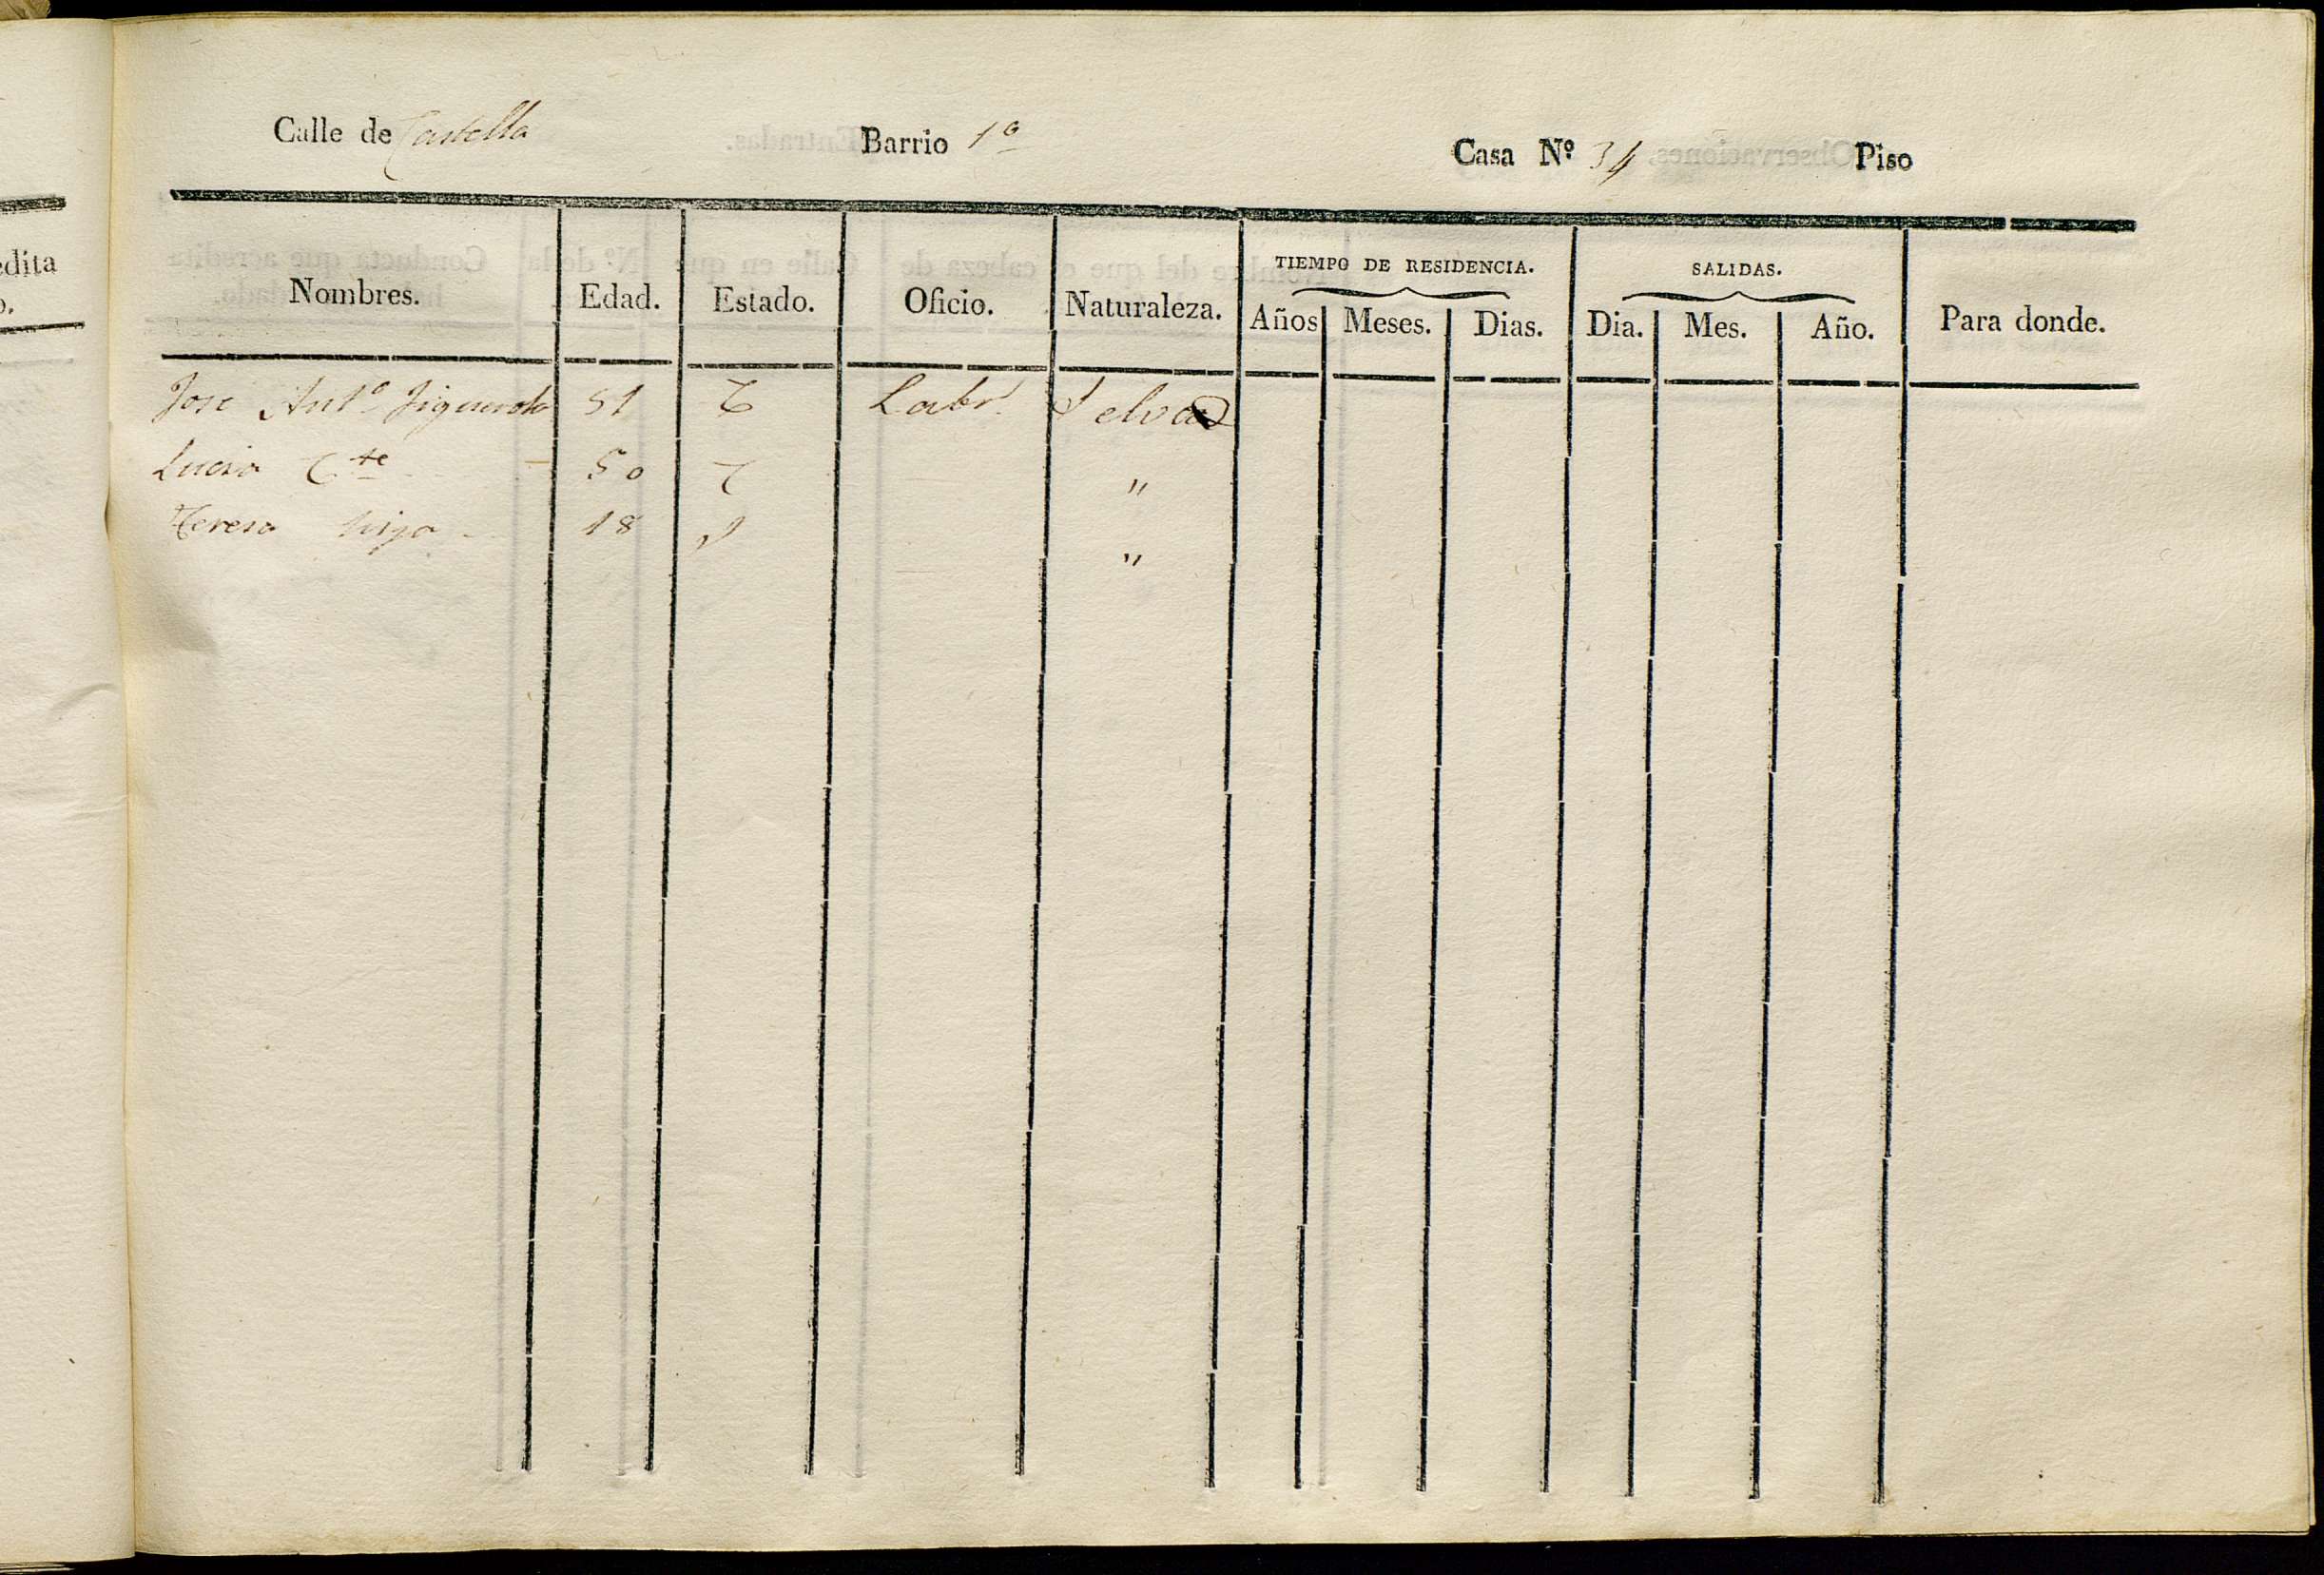 edita
o.
Calle de Castella Barrio 1º Casa Nº 34 Piso
Nombres. Edad. Estado. Oficio. Naturaleza. TIEMPO DE RESIDENCIA. SALIDAS. Para donde.
Años Meses. Dias. Dia. Mes. Año.
Jose Antº Figuerola 51 C Labr. Selva
Lucia Cte 50 C "
Teresa hija 18 S "